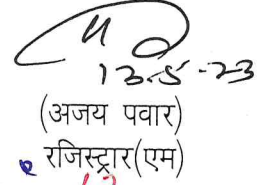 13-5-23
(अजय पवार)
रजिस्ट्रार(एम)